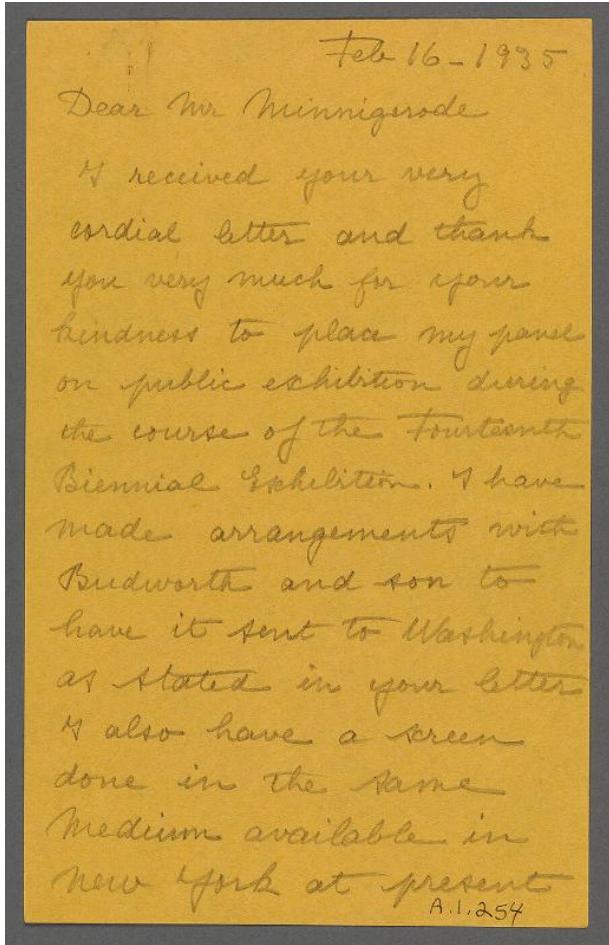 Feb 16 - 1935
Dear Mr Minnigerode
I received your very
cordial letter and thank
you very much for your
kindness to place my panel
on public exhibition during
the course of the Fourteenth
Biennial Exhibition. I have
made arrangements with
Budworth and son to
have it sent to Washington
as stated in your letter
I also have a screen
done in the same
medium available in
New York at present
A.1.254